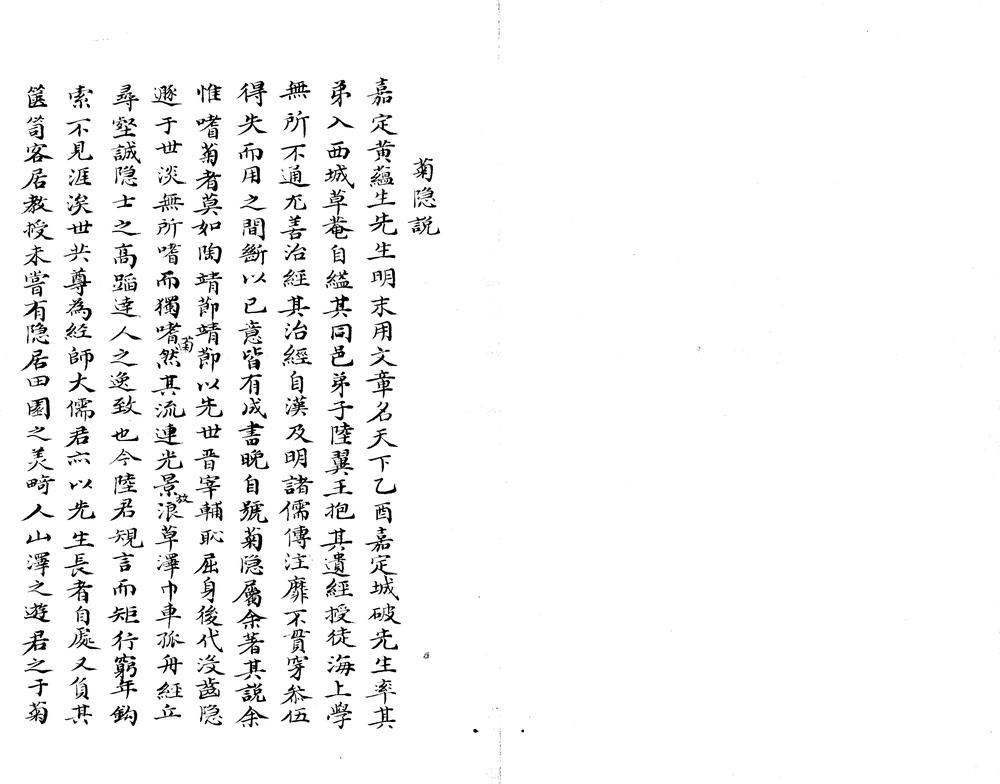 菊隐説
嘉定黄蘊生先生明末用文章名天下乙酉嘉定城破先生率其
弟入西城草菴自縊其同邑弟子陸翼王抱其遺經授徒海上學
無所不通尤善治經其治經自漢及明諸儒傳注靡不貫穿叅伍
得失而用之間斷以已意皆有成書晚自號菊隐屬余著其説余
惟嗜菊者莫如陶靖節靖節以先世晋宰輔恥屈身後代没齒隐
遯于世淡無所嗜而獨嗜菊然其流連光景放浪草澤巾車孤舟經丘
尋壑誠隐士之髙蹈逹人之逸致也今陸君規言而矩行窮年鈎
索不見涯涘世共尊為經師大儒君亦以先生長者自處又負其
箧笥客居教授未嘗有隐居田園之美畸人山澤之遊君之于菊